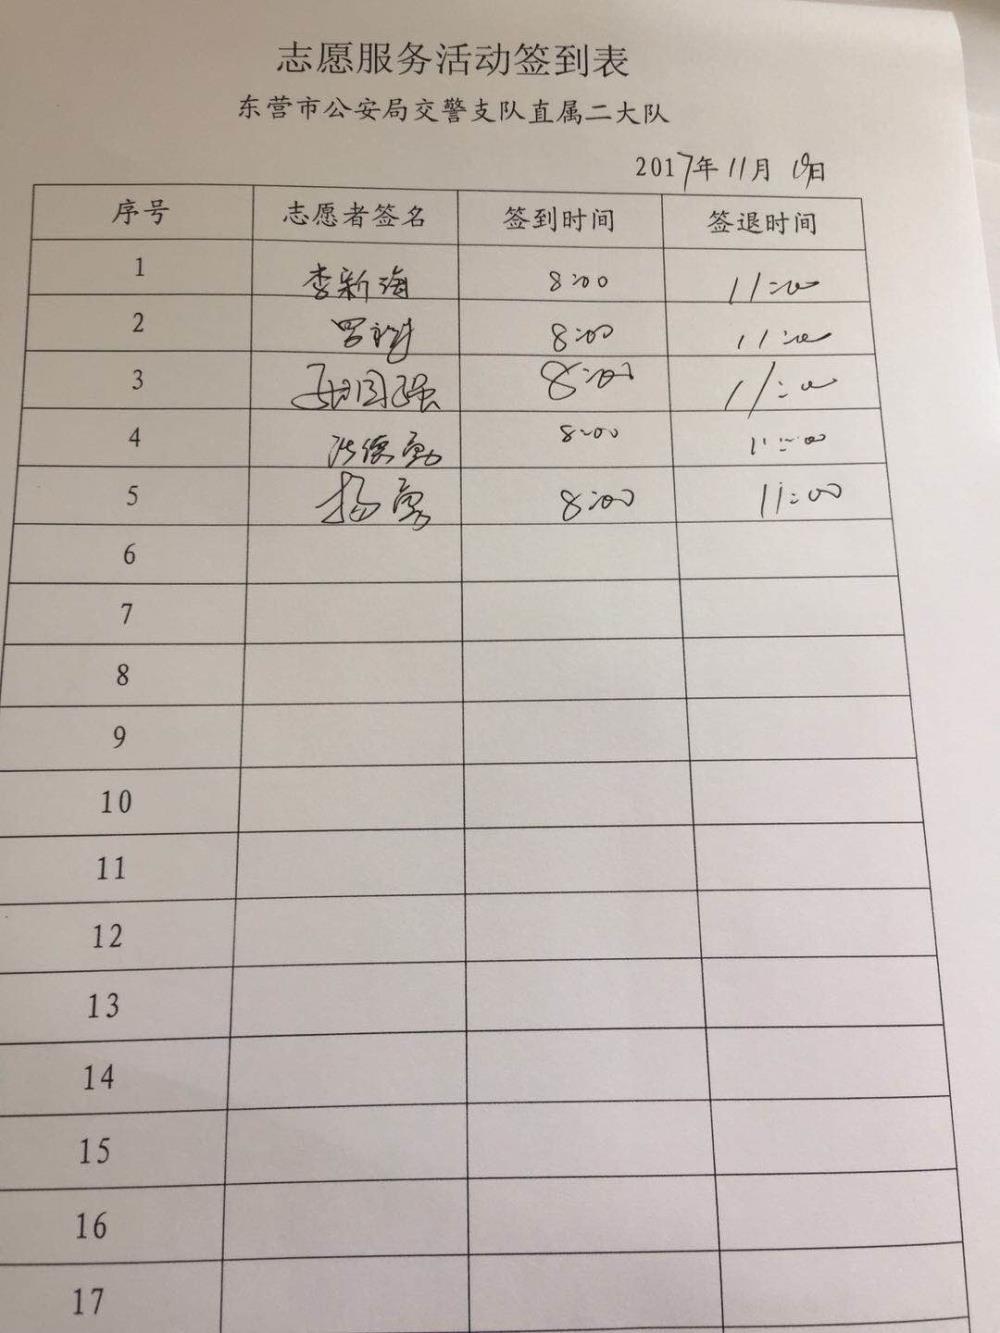 志愿服务活动签到表
东营市公安局交警支队直属二大队
2017年11月19日
序号 志愿者签名 签到时间 签退时间
1 李新海 8:00 11:00
2 8:00 11:00
3 国强 8:00 11:00
4 德勇 8:00 11:00
5 杨勇 8:00 11:00
6
7
8
9
10
11
12
13
14
15
16
17